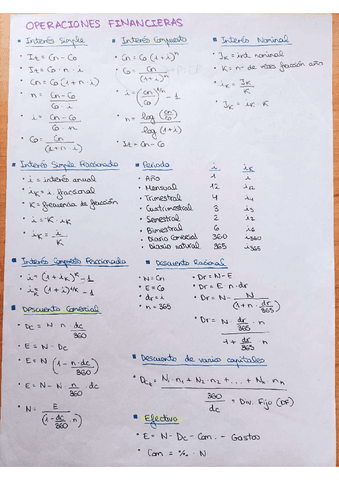 OPERACIONES FINANCIERAS
▪ Interés Simple
• It = Cn - Co
• It = Co · n · i
• Cn = Co (1 + n · i)
• n = Cn - Co / Co · i
• i = Cn - Co / Co · n
• Co = Cn / (1 + n · i)
▪ Interés Compuesto
• Cn = Co (1 + i)^n
• Co = Cn / (1 + i)^n
• i = (Cn / Co)^1/n - 1
• n = log (Cn / Co) / log (1 + i)
• It = Cn - Co
▪ Interés Nominal
• Jk = int. nominal
• K = nº de veces fracción año
• ik = Jk / K
• Jk = ik · K
▪ Interés Simple Fraccionado
• i = interés anual
• ik = i. fraccional
• K = frecuencia de fracción
• i = K · ik
• ik = i / K
▪ Periodo i ik
• Año 1 i
• Mensual 12 i12
• Trimestral 4 i4
• Cuatrimestral 3 i3
• Semestral 2 i2
• Bimestral 6 i6
• Diario comercial 360 i360
• Diario natural 365 i365
▪ Interés Compuesto Fraccionado
• i = (1 + ik)^K - 1
• ik = (1 + i)^1/K - 1
▪ Descuento Comercial
• Dc = N · n · dc / 360
• E = N - Dc
• E = N (1 - n · dc / 360)
• E = N - N · n / 360 · dc
• N = E / (1 - dc / 360 · n)
▪ Descuento Racional
• N = Cn
• E = Co
• dr = i
• n = 365
• Dr = N - E
• Dr = E · n · dr
• Dr = N - N / (1 + n · dr / 365)
• Dr = N · dr / 365 · n / 1 + dr / 365 · n
▪ Descuento de varios capitales
• Dc = N1 · n1 + N2 · n2 + ... + Nn · nn / 360 / dc = Div. Fijo (DF)
▪ Efectivo
• E = N - Dc - Com. - Gastos
• Com = % · N